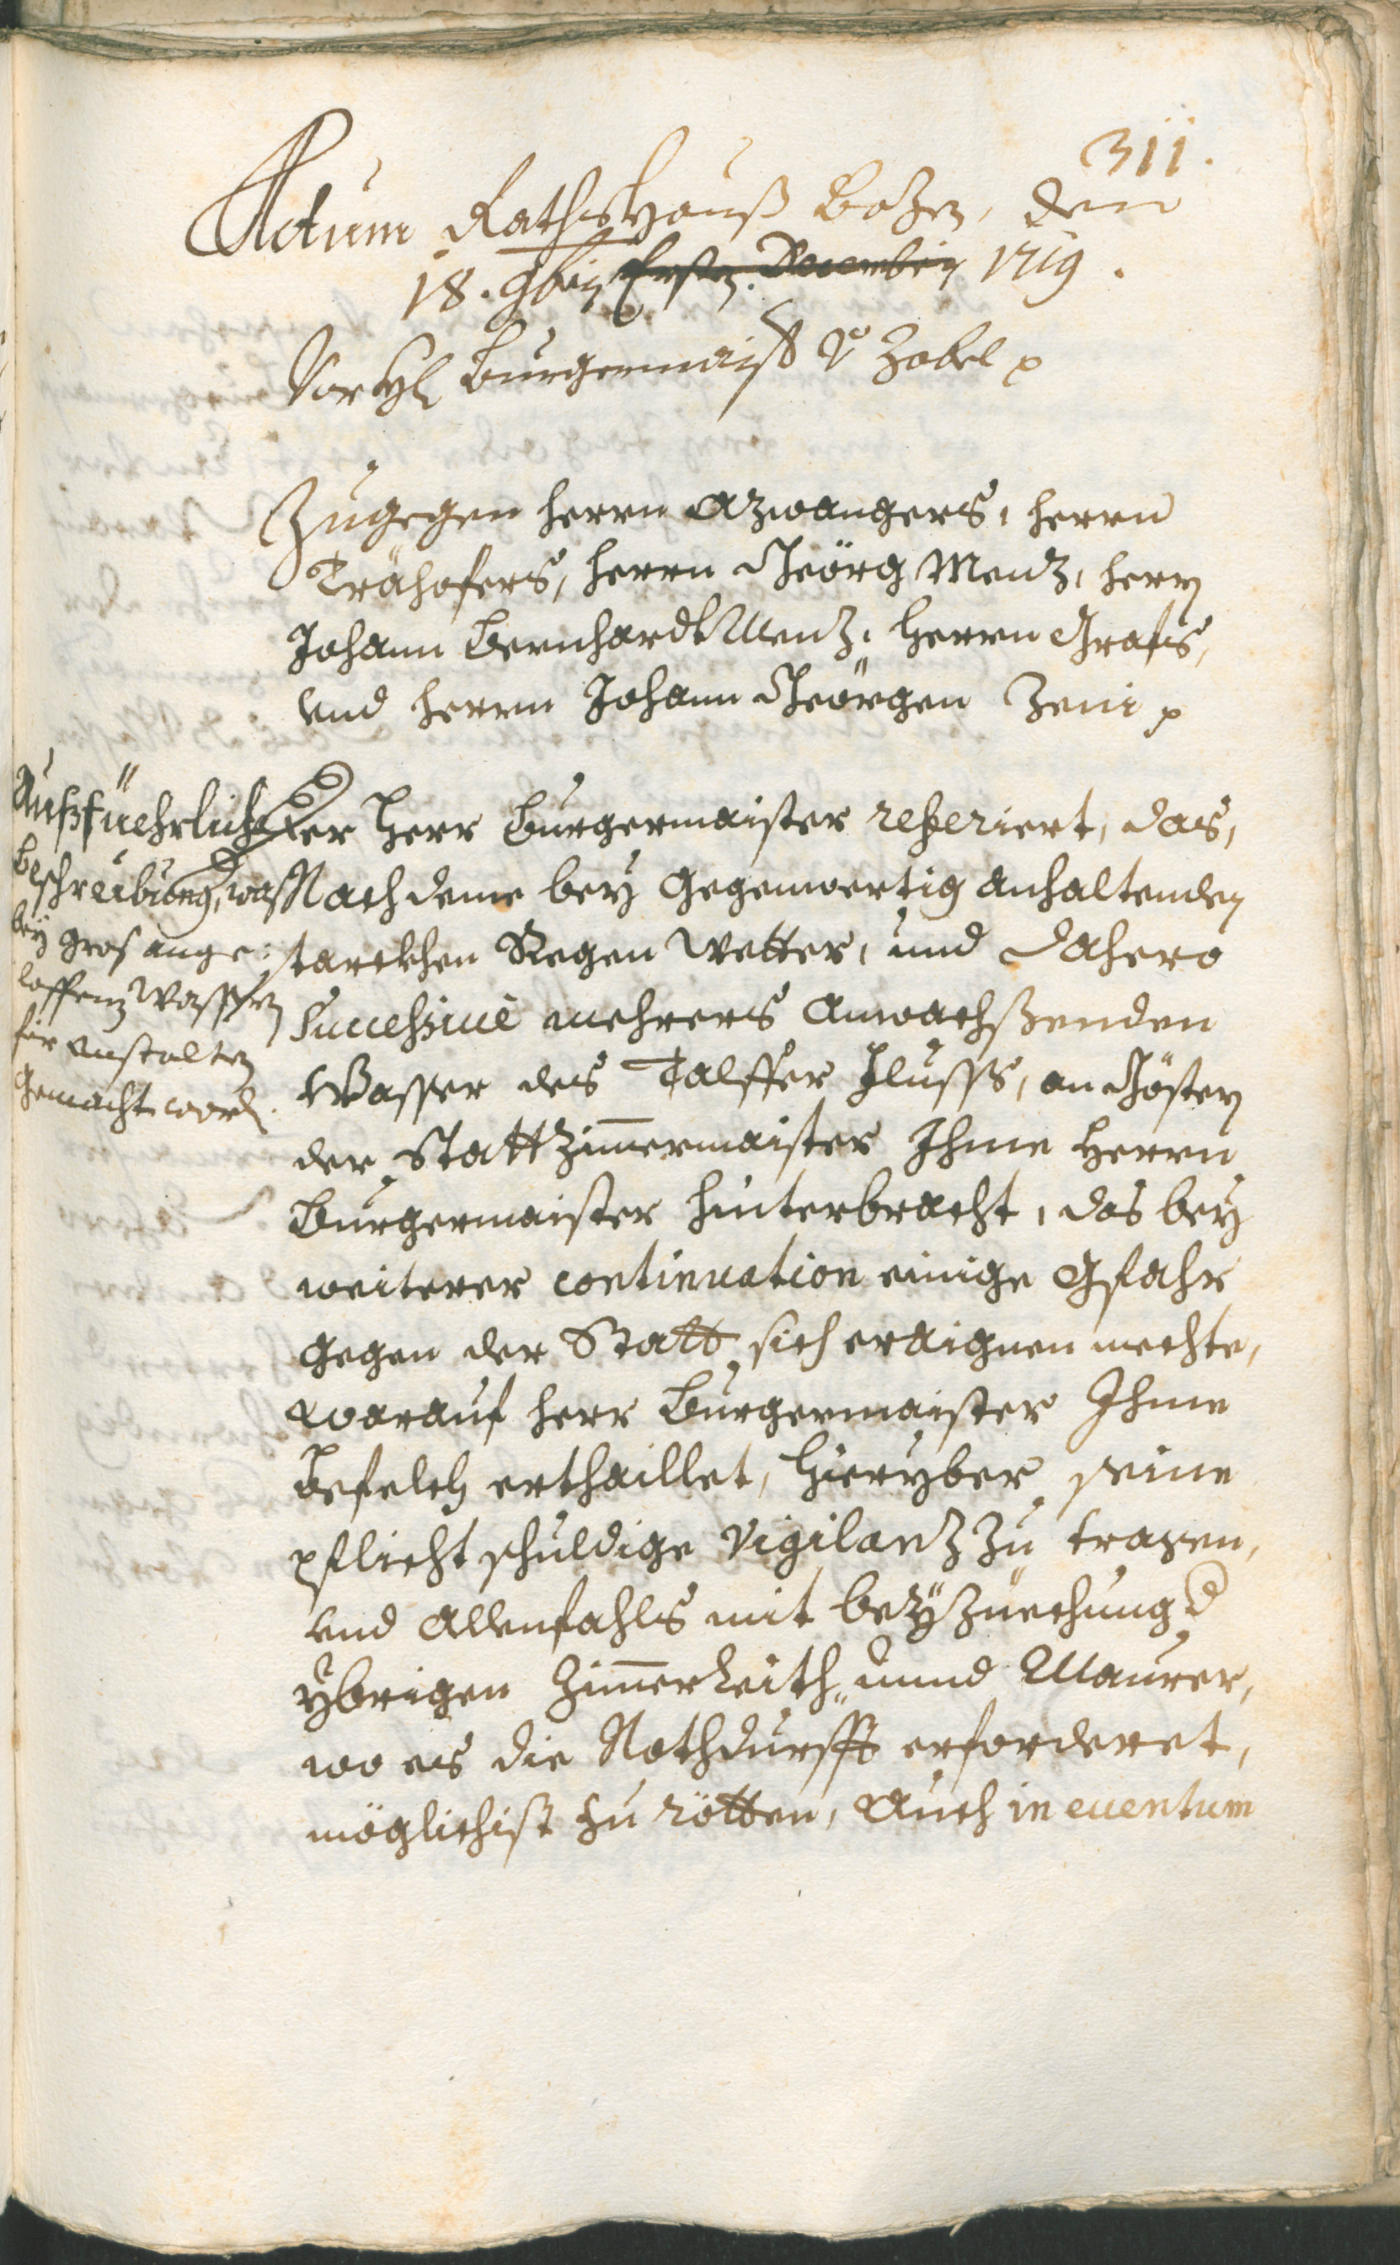 311.
Actum Rathshauß Bozen, den
18. 9bris Ersten Decembris 1719.
Vor Hl Burgermaister v. Zobel p
Zugegen herrn Azwangers, herrn
Träyhofers, herrn Georg Menz, herrn
Johann Bernhardt Menz, Herrn Grafs,
und herrn Johann Geörgen Zeni p
Außfüehrliche
Beschreibung, was
bey gros ange:
loffenen Wasser
für anstalten
gemacht word.
Der Herr Burgermaister referiert, das,
Nachdeme bey gegenwertig anhaltenden
starckhen Regen Wetter, und dahero
Successive mehrers Anwachsßenden
Wasser des Talffer Flusß, an Gösten
der Statt Zimmermaister Ihme Herrn
Burgermaister hinterbracht, das bey
weiterer continuation einige Gfahr
gegen der Statt sich eraignen mechte,
Worauf herr Burgermaister Ihme
Befelch erthaillet, hieryber seine
pflicht schuldige Vigilanz zu tragen,
und Allenfahls mit beyzüechung d
ybrigen Zimmerleith und Maurer,
wo es die Nothdurfft erforderet,
möglichist zu rötten, Auch in eventum